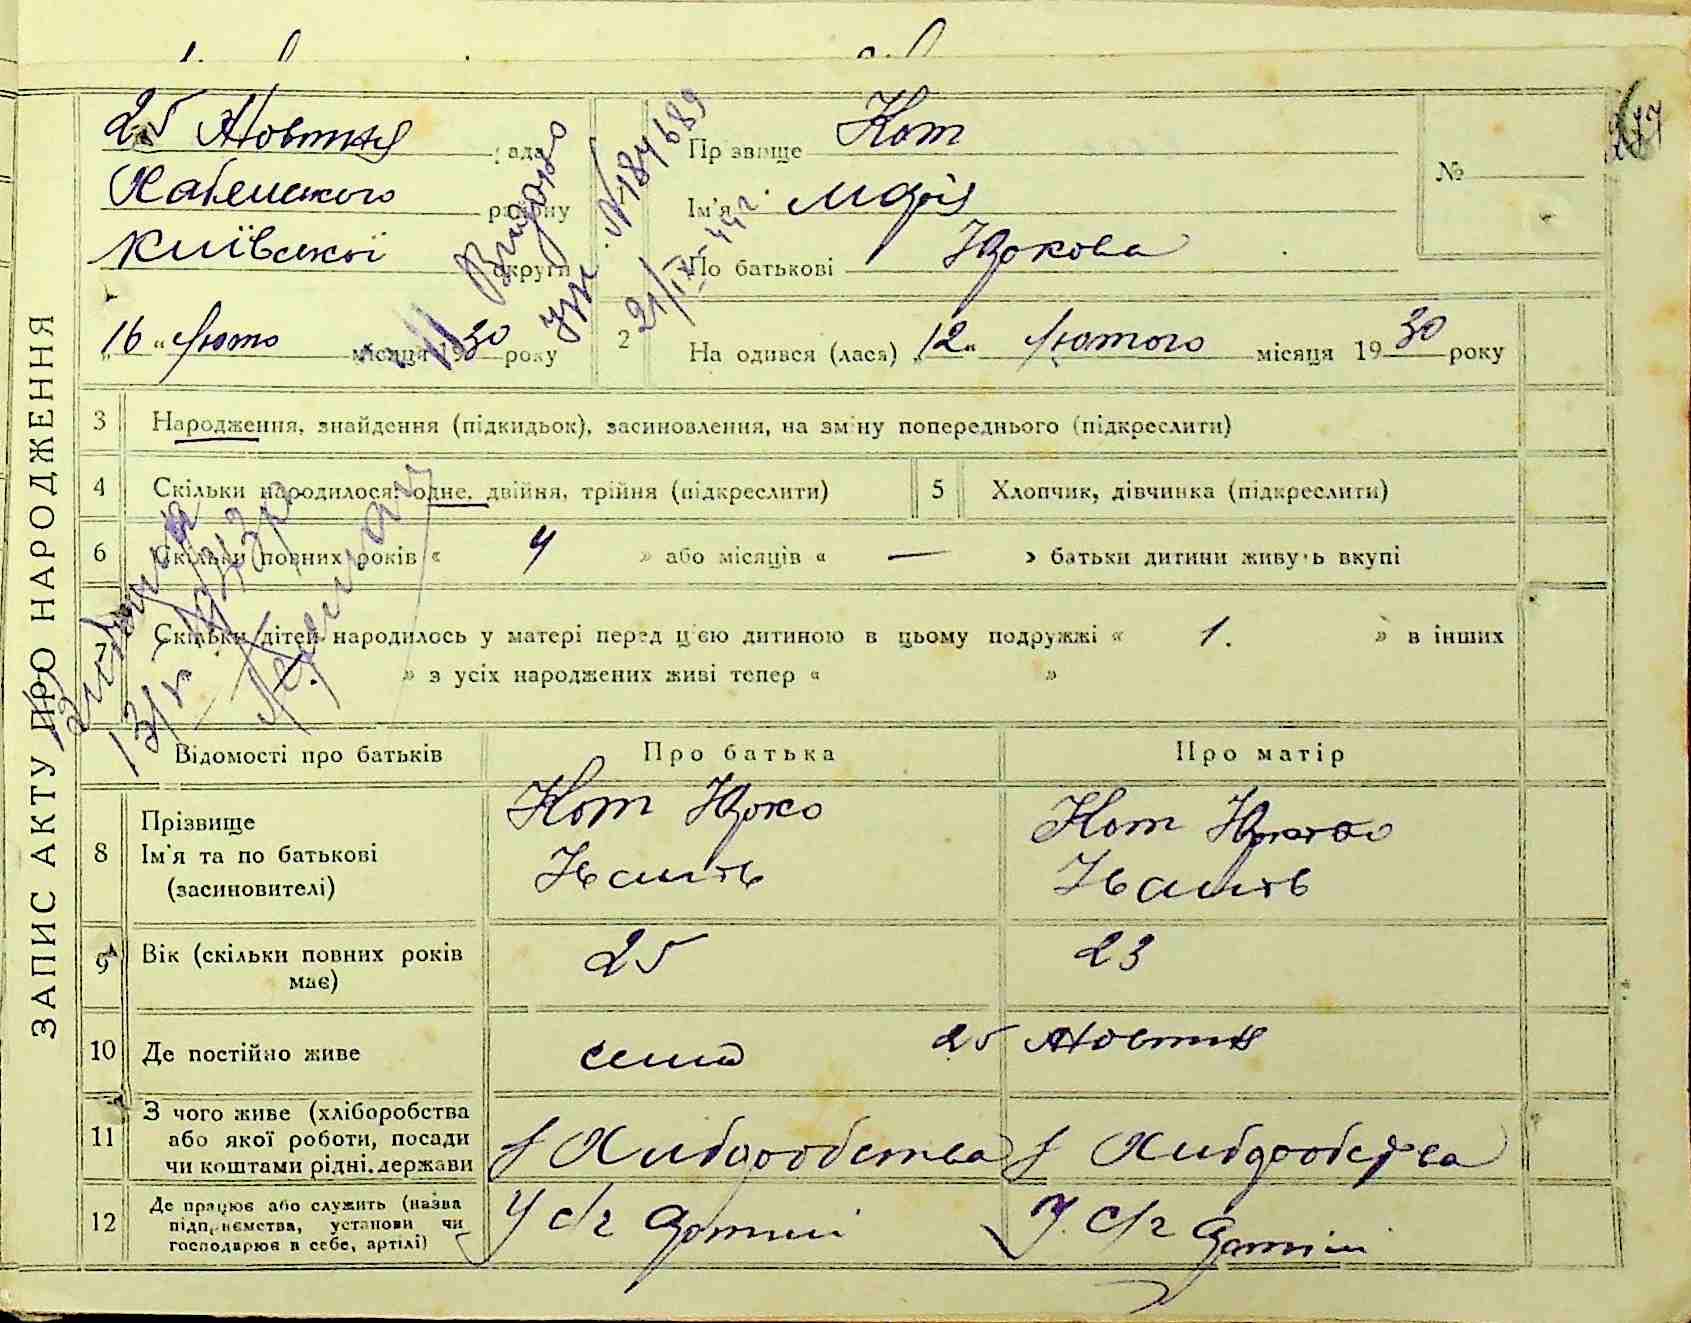 25 Жовтня рада
Хабенского району
Київської округи
"16" Люто місяця 1930 року
Видано
№ 184689
21/IX-44 г.
Прізвище Кот
Ім'я Марія
По батькові
№
177
2
На одився (лася) "12" Лютого місяця 1930 року
ЗАПИС АКТУ ПРО НАРОДЖЕННЯ
3 Народження, знайдення (підкидьок), засиновлення, на зміну попереднього (підкреслити)
4 Скільки народилося: одне, двійня, трійня (підкреслити)
5 Хлопчик, дівчинка (підкреслити)
6 Скільки повних років « 4 » або місяців « — » батьки дитини живуть вкупі
7 Скільки дітей народилось у матері перед цією дитиною в цьому подружжі « 1. » в інших
» з усіх народжених живі тепер « »
Відомості про батьків
Про батька
Про матір
8 Прізвище
Ім'я та по батькові
(засиновителі)
Кот
Кот
9 Вік (скільки повних років має)
25
23
10 Де постійно живе
село 25 Жовтня
11 З чого живе (хліборобства
або якої роботи, посади
чи коштами рідні, держави
Хліборобства
Хліборобства
12 Де працює або служить (назва
підприємства, установи чи
господарює в себе, артілі)
У с/г артілі
У с/г артілі